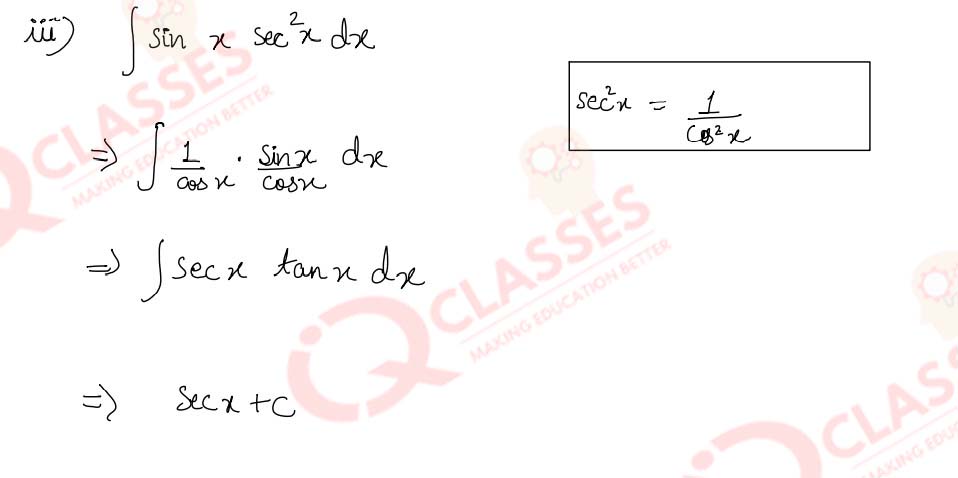 iii) ∫ sin x sec²x dx
sec²x = 1/cos²x
⇒ ∫ 1/cosx · sinx/cosx dx
⇒ ∫ secx tanx dx
⇒ secx + C
iQ CLASSES
MAKING EDUCATION BETTER
iQ CLASSES
MAKING EDUCATION BETTER
CLAS
MAKING EDUC